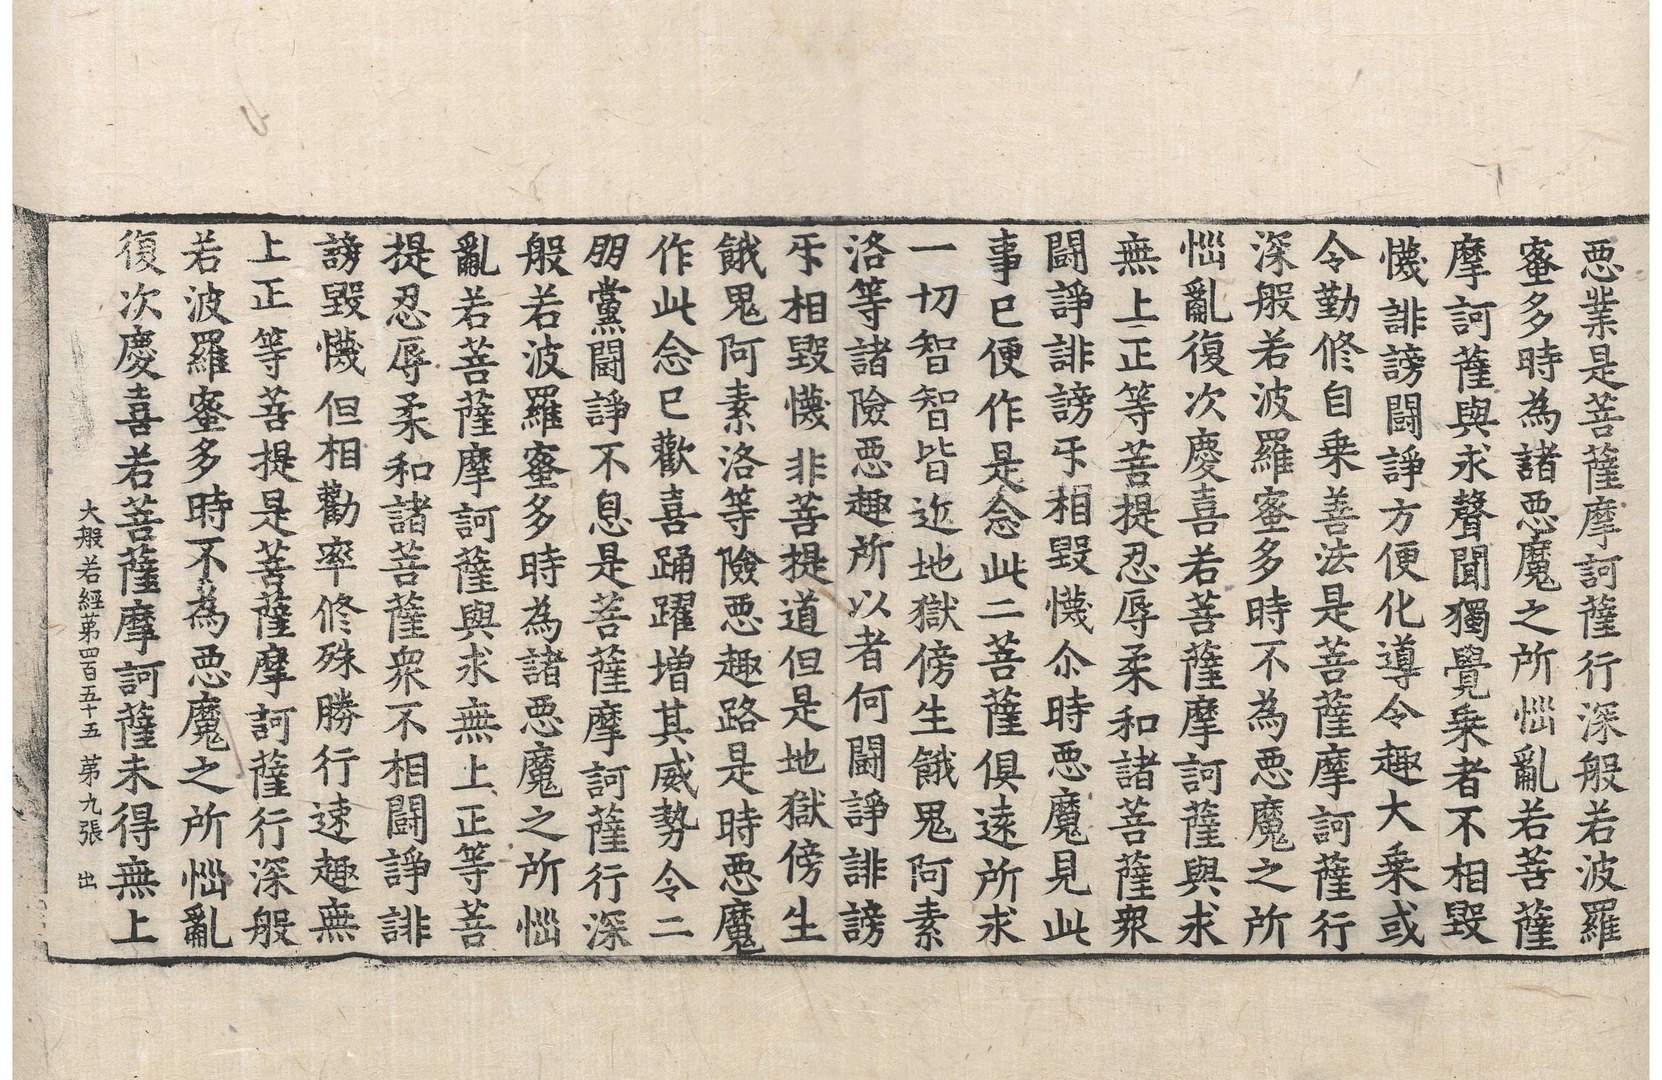 惡業是菩薩摩訶薩行深般若波羅
蜜多時為諸惡魔之所惱亂若菩薩
摩訶薩與求聲聞獨覺乗者不相毀
懱誹謗鬪諍方便化導令趣大乗或
令勤修自乗善法是菩薩摩訶薩行
深般若波羅蜜多時不為惡魔之所
惱亂復次慶喜若菩薩摩訶薩與求
無上正等菩提忍辱柔和諸菩薩衆
鬪諍誹謗㸦相毀懱尒時惡魔見此
事已便作是念此二菩薩俱遠所求
一切智智皆近地獄傍生餓鬼阿素
洛等諸險惡趣所以者何鬪諍誹謗
㸦相毀懱非菩提道但是地獄傍生
餓鬼阿素洛等險惡趣路是時惡魔
作此念已歡喜踊躍增其威勢令二
朋黨鬪諍不息是菩薩摩訶薩行深
般若波羅蜜多時為諸惡魔之所惱
亂若菩薩摩訶薩與求無上正等菩
提忍辱柔和諸菩薩衆不相鬪諍誹
謗毀懱但相勸率修殊勝行速趣無
上正等菩提是菩薩摩訶薩行深般
若波羅蜜多時不為惡魔之所惱亂
復次慶喜若菩薩摩訶薩未得無上
大般若經苐四百五十五 苐九張 出